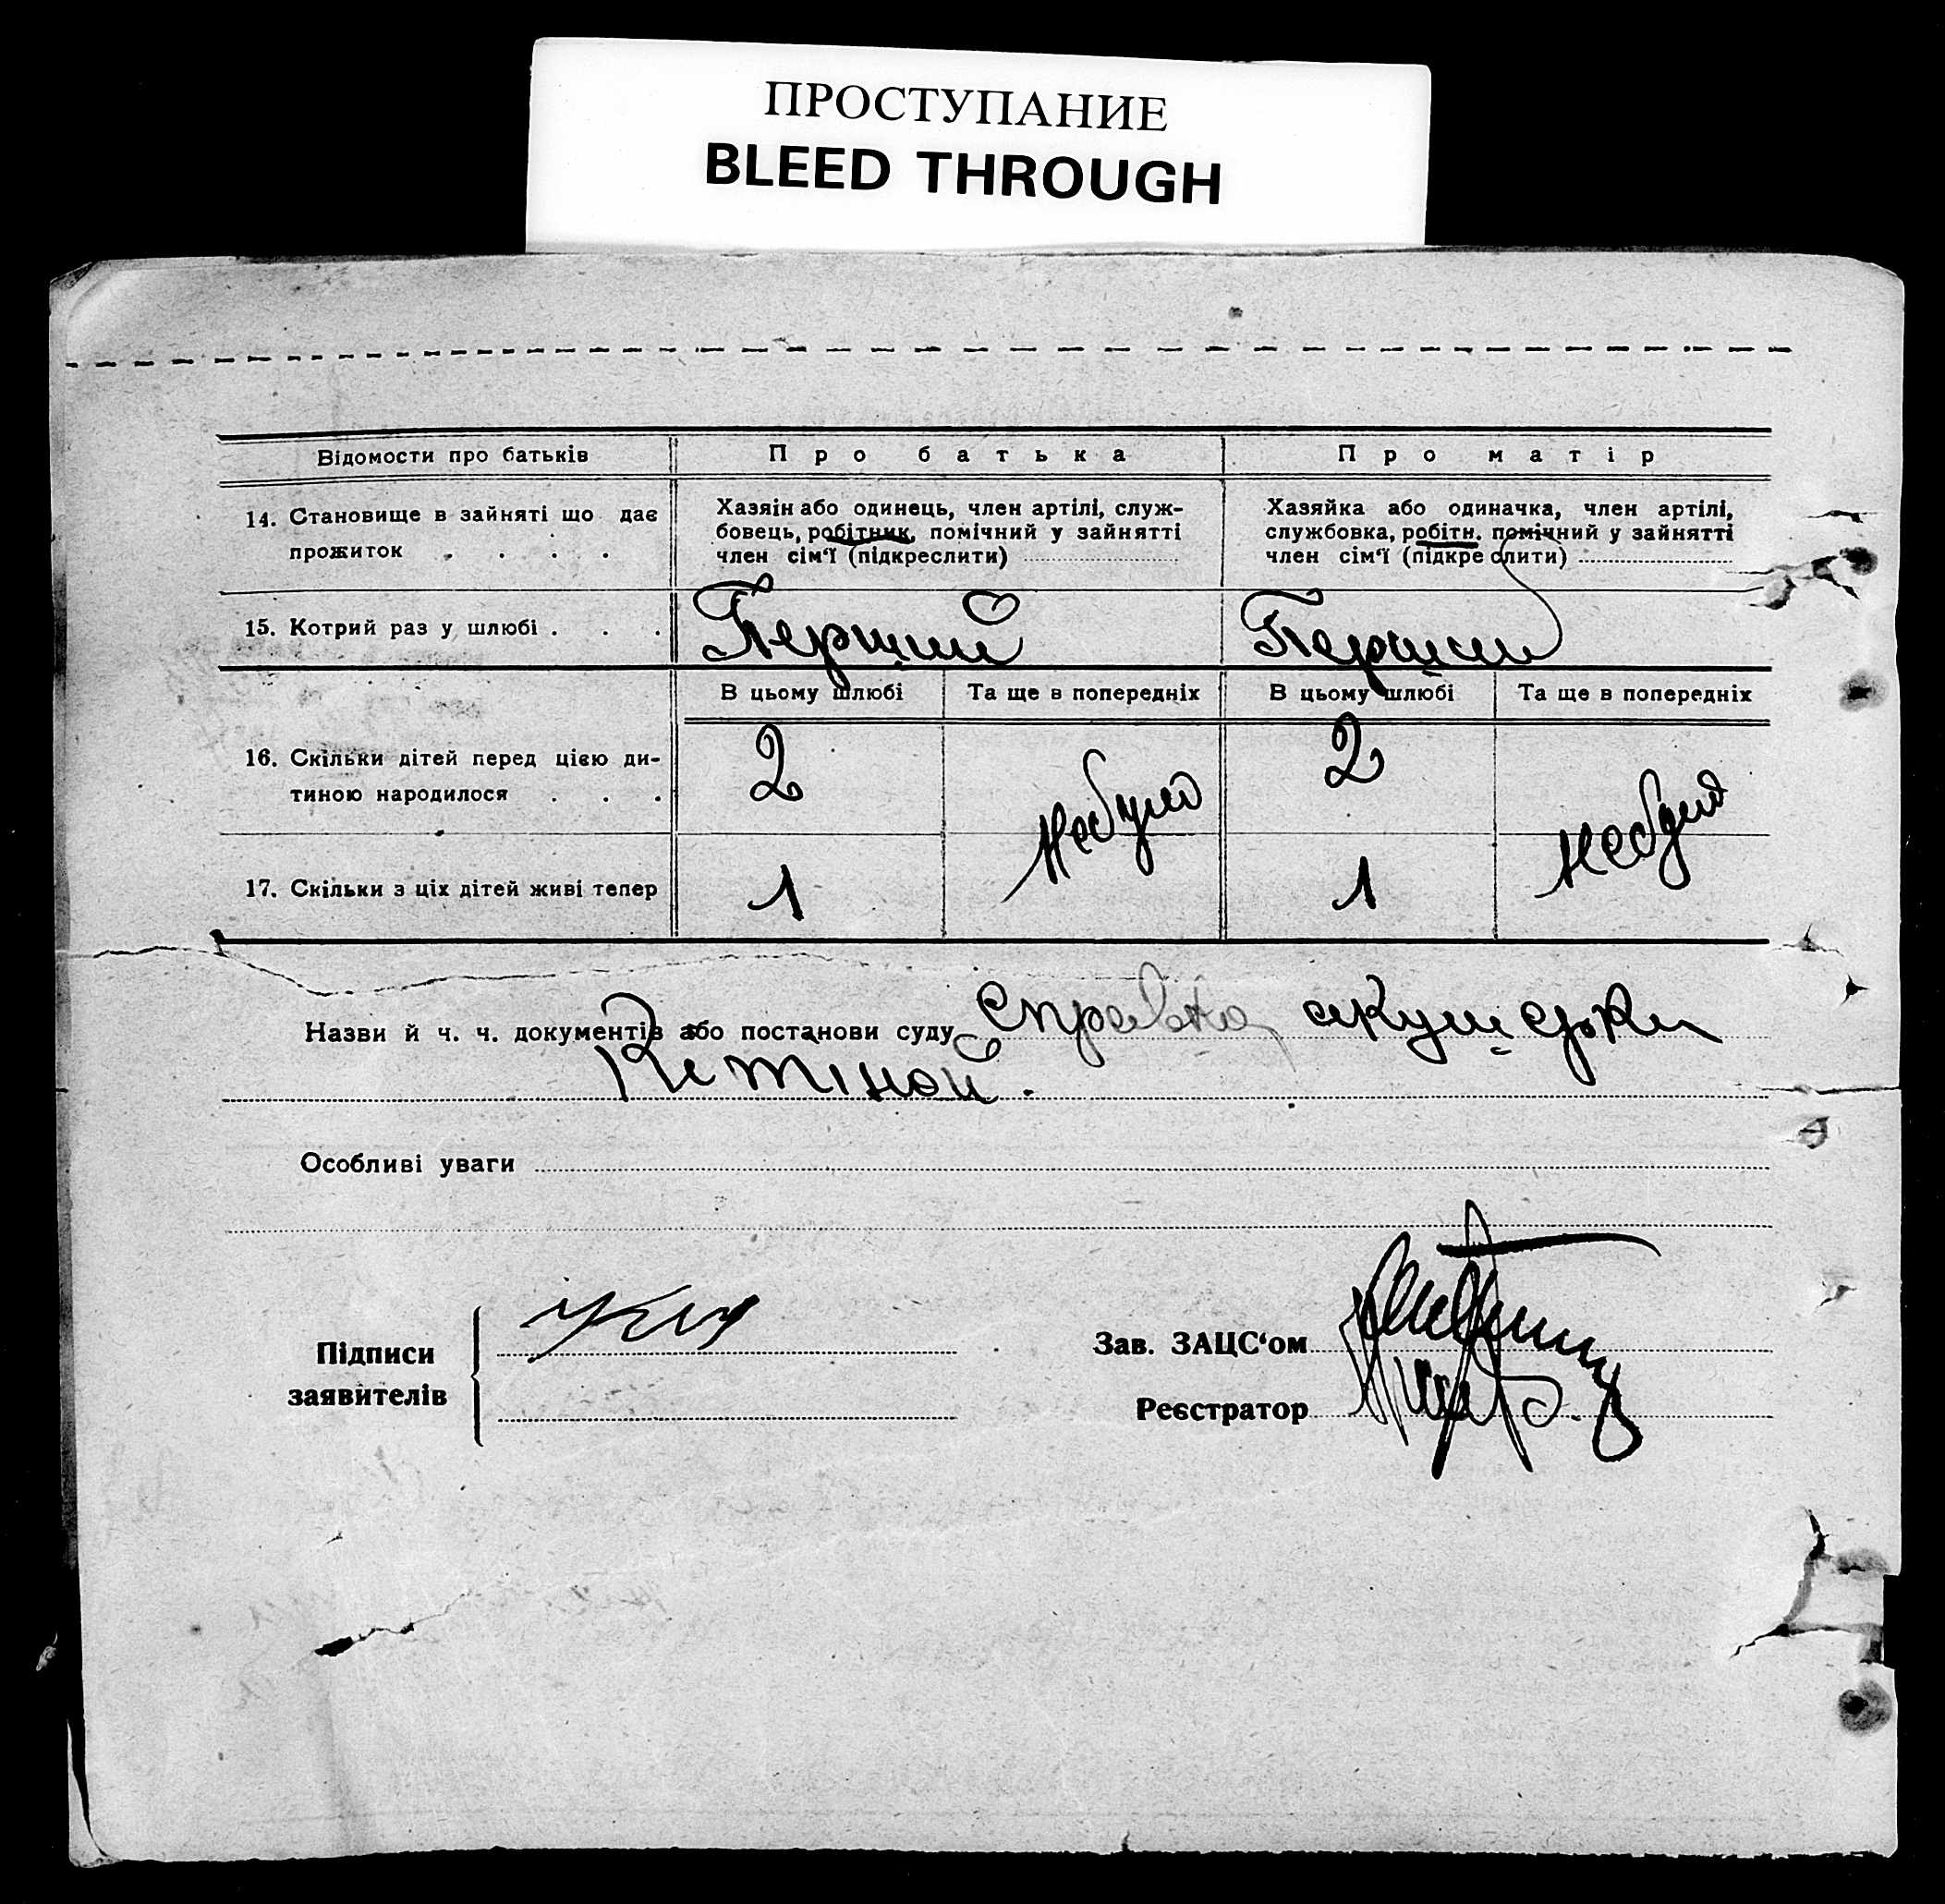 ПРОСТУПАНИЕ
BLEED THROUGH
Відомости про батьків
Про батька
Про матір
14. Становище в зайняті що дає
прожиток . . . .
Хазяін або одинець, член артілі, служ-
бовець, робітник, помічний у зайнятті
член сім‘ї (підкреслити)
Хазяйка або одиначка, член артілі,
службовка, робітн. помічний у зайнятті
член сім‘ї (підкреслити)
15. Котрий раз у шлюбі . . .
Перший
Перший
В цьому шлюбі
Та ще в попередніх
В цьому шлюбі
Та ще в попередніх
16. Скільки дітей перед цією ди-
тиною народилося . . .
2
Небуло
2
Небуло
17. Скільки з ціх дітей живі тепер
1
1
Назви й ч. ч. документів або постанови суду Справка акушерки
Кетіной.
Особливі уваги
Підписи
заявителів
Зав. ЗАЦС‘ом
Реєстратор